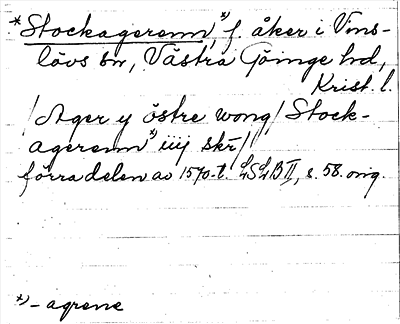 *Stockagerenn,*) f. åker i Vins-
lövs sn, Västra Göinge hd,
Krist. l.
/Ager y östre wong/ Stock-
agerenn*) iiij skr/
förra delen av 1570-t. LSLB II, s. 58. orig.
*) - agrene